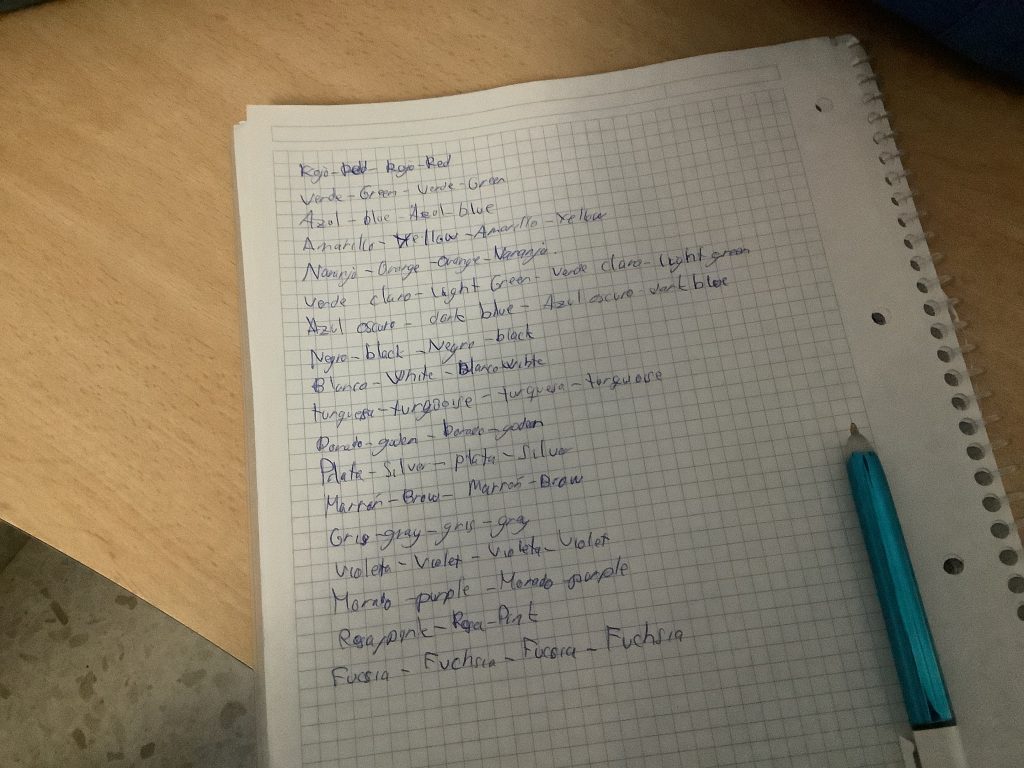 Rojo-Red- Rojo-Red
Verde-Green-Verde-Green
Azul-blue-Azul-blue
Amarillo-Yellow-Amarillo-Yellow
Naranja-Orange-Orange-Naranja.
Verde claro-Light Green-Verde claro-Light green
Azul oscuro- dark blue- Azul oscuro-dark blue
Negro-black-Negro-black
Blanco-White-Blanco White
turquesa-turqoise-turquesa-turquoise
Dorado-goden-Dorado-goden
Plata-Silver-plata-Silver
Marrón-Brow-Marrón-Brow
Gris-gray-gris-gray
Violeta-Violet-Violeta-Violet
Morado-purple-Morado-purple
Rosa/pink-Rosa-Pink
Fucsia-Fuchsia-Fucsia-Fuchsia